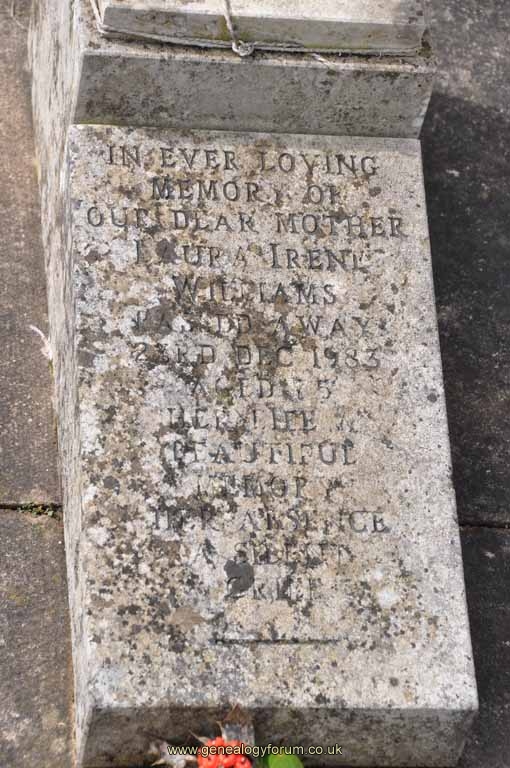 IN EVER LOVING
MEMORY OF
OUR DEAR MOTHER
LAURA IRENE
WILLIAMS
PASSED AWAY
23RD DEC 1983
AGED 75
HER LIFE A
BEAUTIFUL
MEMORY
HER ABSENCE
A SILENT
GRIEF
www.genealogyforum.co.uk